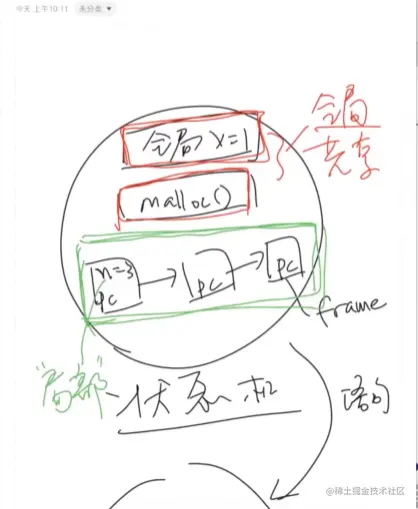 今天 上午10:11 未分类
全局 x=1
全局
共享
malloc()
n=3
pc
pc
pc
frame
"局部"
状态机
语句
@稀土掘金技术社区